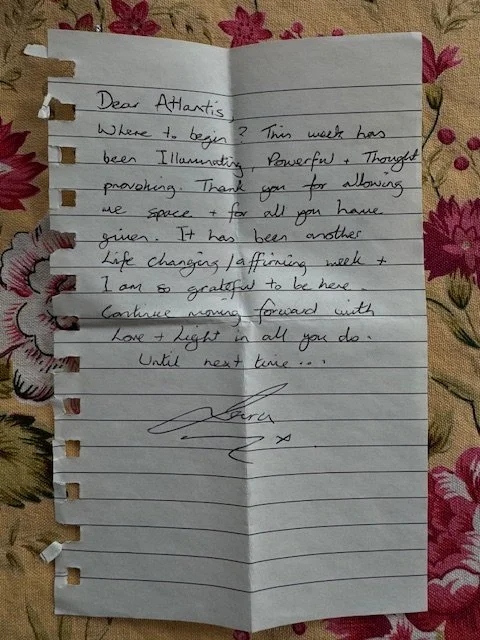 Dear Atlantis,
Where to begin? This week has
been Illuminating, Powerful + Thought
provoking. Thank you for allowing
me space + for all you have
given. It has been another
Life changing/affirming week +
I am so grateful to be here.
Continue moving forward with
Love + Light in all you do.
Until next time...
x